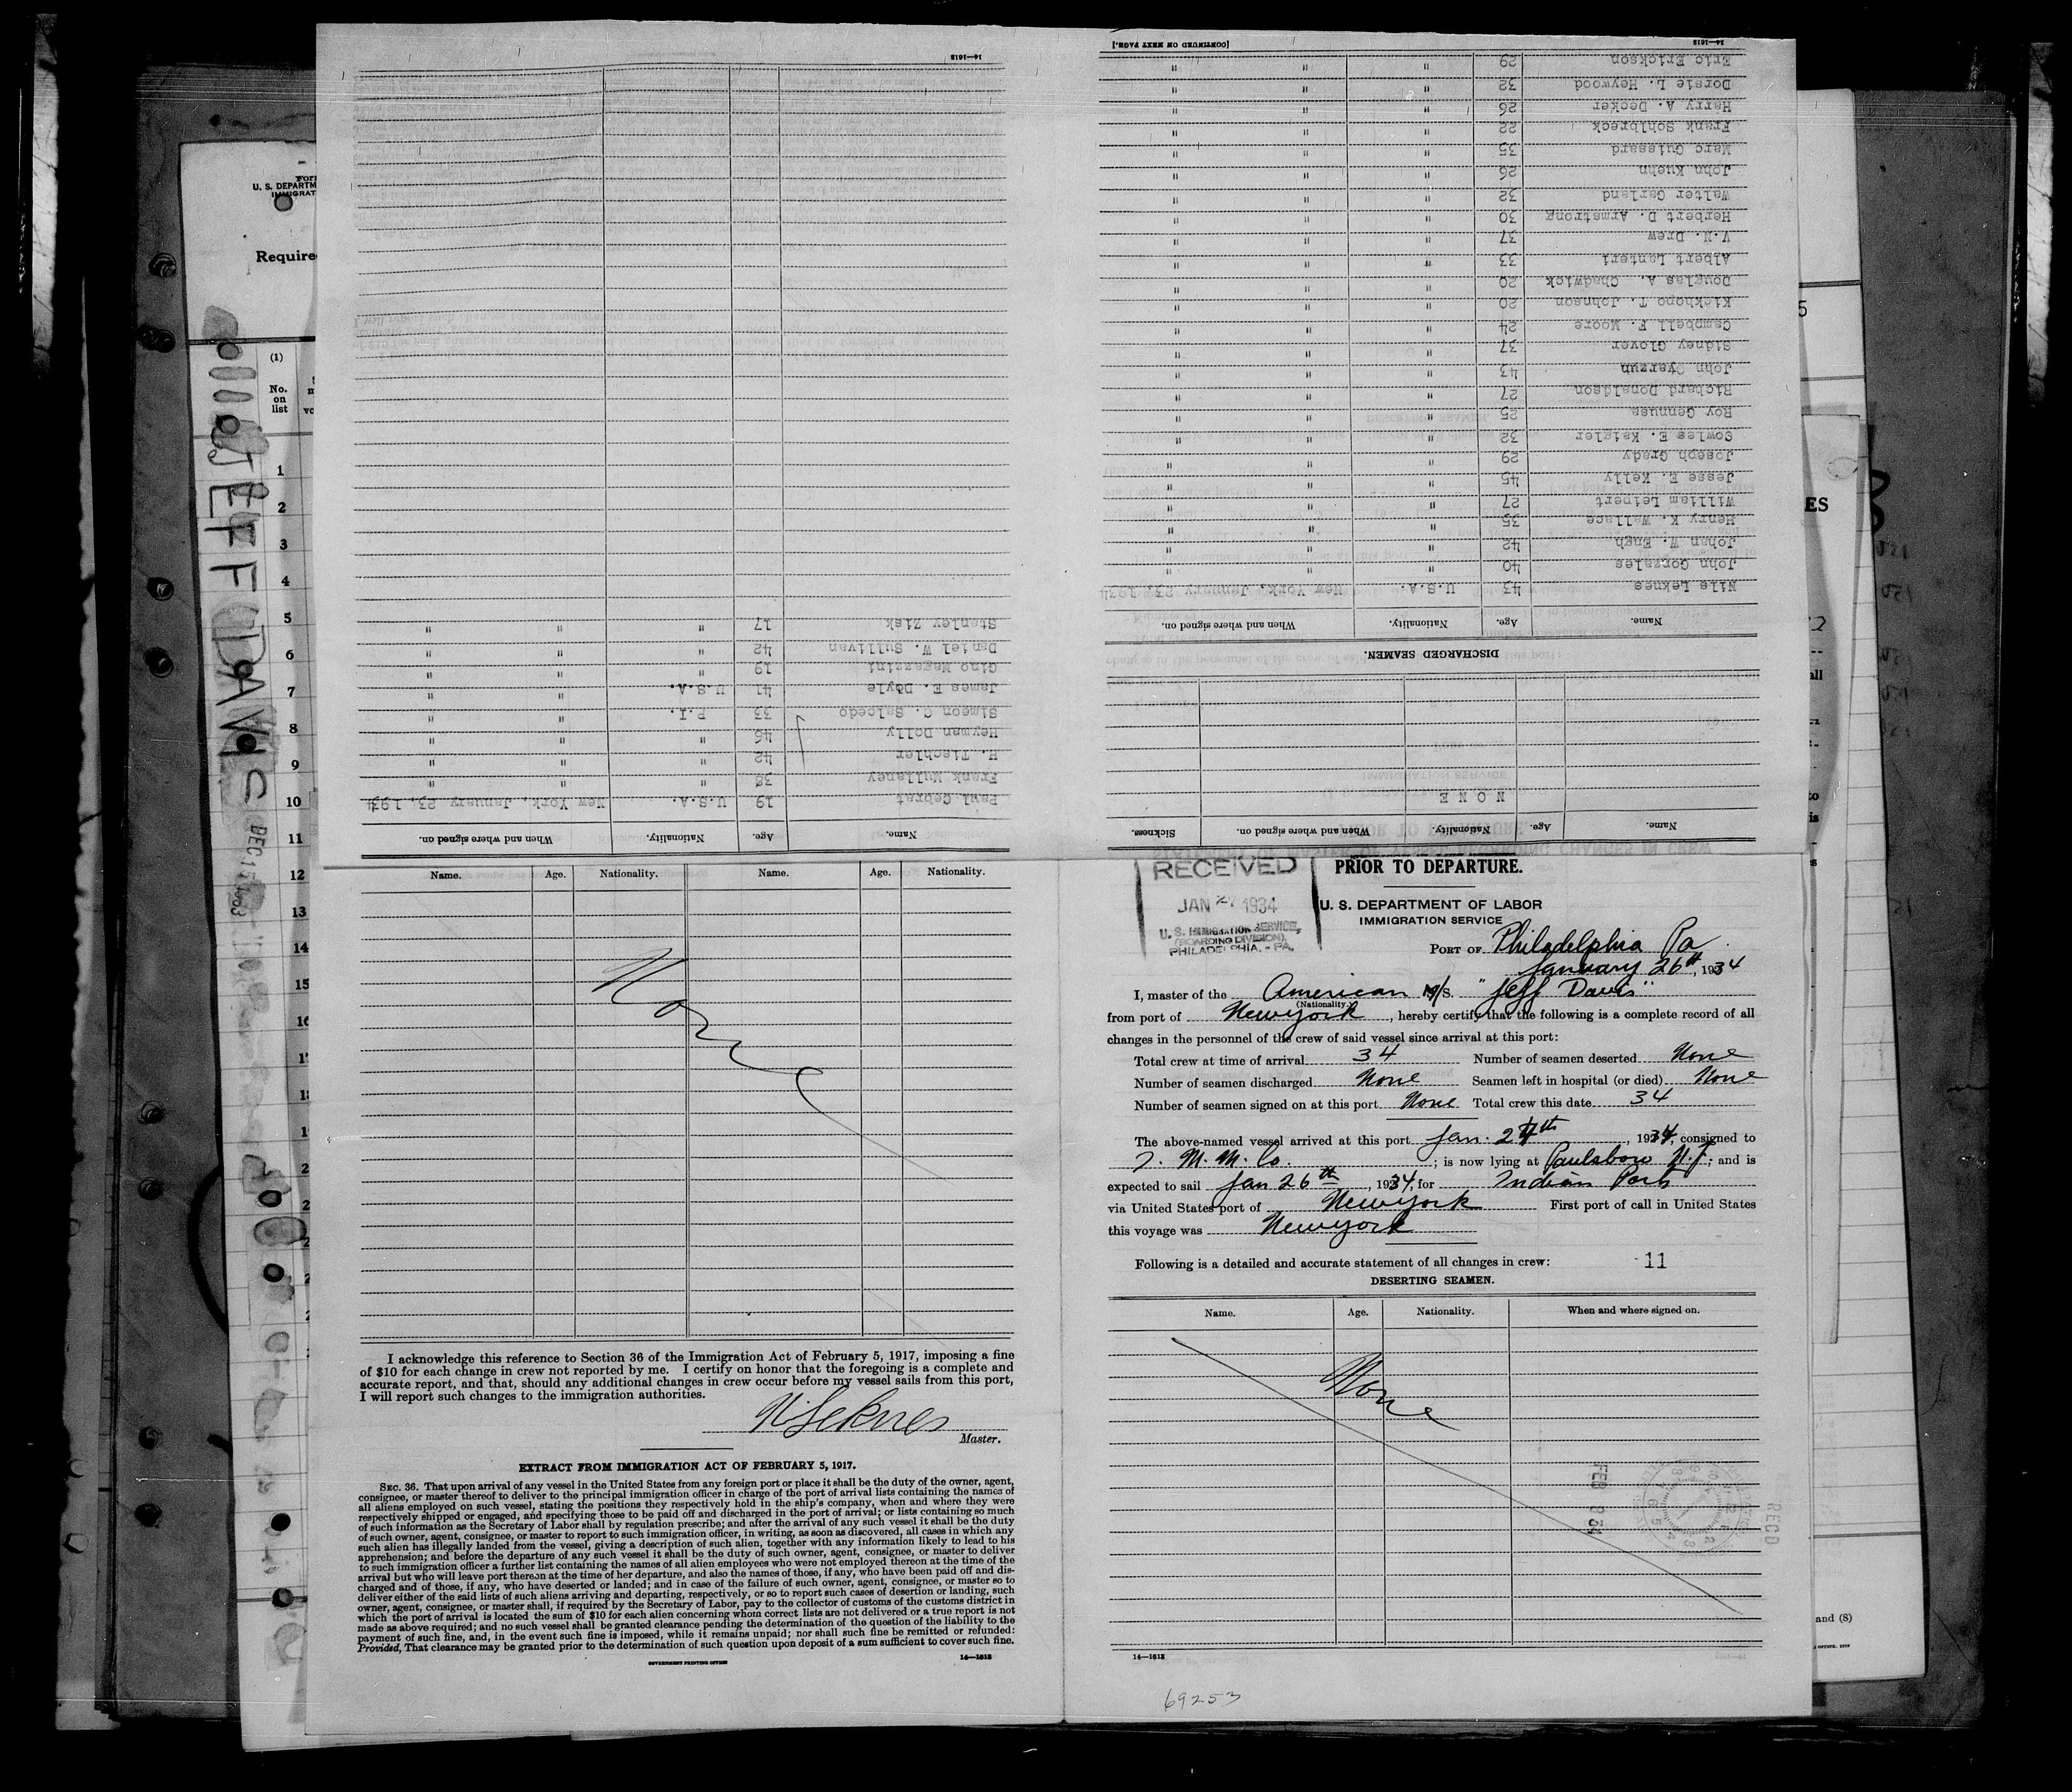 PRIOR TO DEPARTURE.
RECEIVED
JAN 1934
U. S. IMMIGRATION SERVICE,
(BOARDING DIVISION),
PHILADELPHIA, - PA.
U. S. DEPARTMENT OF LABOR
IMMIGRATION SERVICE
PORT OF Philadelphia Pa.
January 26th, 1934
I, master of the American M/S. "Jeff Davis"
(Nationality.)
from port of New York, hereby certify that the following is a complete record of all
changes in the personnel of the crew of said vessel since arrival at this port:
Total crew at time of arrival 34 Number of seamen deserted None
Number of seamen discharged None Seamen left in hospital (or died) None
Number of seamen signed on at this port None Total crew this date 34
The above-named vessel arrived at this port Jan. 24th, 1934, consigned to
I. M. M. Co. ; is now lying at Paulsboro N.J.; and is
expected to sail Jan 26th, 1934, for Indian Ports
via United States port of New York First port of call in United States
this voyage was New York
Following is a detailed and accurate statement of all changes in crew: 11
DESERTING SEAMEN.
Name. Age. Nationality. When and where signed on.
None
FEB 8 34
REC'D
14—1613
69253
Name. Age. Nationality. When and where signed on. Sickness.
NONE
DISCHARGED SEAMEN.
Name. Age. Nationality. When and where signed on.
Nils Leknes 43 U.S.A. New York, January 23, 1934
John Gorzales 40 " " "
Johan W. Engh 42 " " "
Henry K. Wallace 35 " " "
William Leinert 27 " " "
Jesse E. Kelly 45 " " "
Joseph Grady 29 " " "
Cowles E. Kaigler 32 " " "
Roy Gennuse 25 " " "
Richard Donaldson 27 " " "
John Oyarzun 43 " " "
Sidney Glover 37 " " "
Campbell F. Moore 24 " " "
Kickhopo T. Johnson 20 " " "
Douglas A. Chadwick 20 " " "
Albert Lanteri 33 " " "
V.N. Drew 37 " " "
Herbert D. Armstrong 30 " " "
Walter Garland 32 " " "
John Kuehn 26 " " "
Marc Guissard 35 " " "
Frank Sohlbreck 22 " " "
Harry A. Decker 26 " " "
Dorsie L. Heywood 32 " " "
Eric Erickson 29 " " "
14—1613 [CONTINUED ON NEXT PAGE.]
Name. Age. Nationality. When and where signed on.
Paul Cebrat 19 U.S.A. New York, January 23, 1934
Frank Mullaney 38 " " "
H. Tischler 42 " " "
Heyman Dolly 46 " " "
Simeon C. Salcedo 33 P.I. " "
James E. Doyle 41 U.S.A. " "
Gino Magazzini 19 " " "
Daniel W. Sullivan 42 " " "
Stanley Zisk 17 " " "
14—1613
Name. Age. Nationality. Name. Age. Nationality.
None
I acknowledge this reference to Section 36 of the Immigration Act of February 5, 1917, imposing a fine
of $10 for each change in crew not reported by me. I certify on honor that the foregoing is a complete and
accurate report, and that, should any additional changes in crew occur before my vessel sails from this port,
I will report such changes to the immigration authorities.
N. Leknes
Master.
EXTRACT FROM IMMIGRATION ACT OF FEBRUARY 5, 1917.
SEC. 36. That upon arrival of any vessel in the United States from any foreign port or place it shall be the duty of the owner, agent,
consignee, or master thereof to deliver to the principal immigration officer in charge of the port of arrival lists containing the names of
all aliens employed on such vessel, stating the positions they respectively hold in the ship's company, when and where they were
respectively shipped or engaged, and specifying those to be paid off and discharged in the port of arrival; or lists containing so much
of such information as the Secretary of Labor shall by regulation prescribe; and after the arrival of any such vessel it shall be the duty
of such owner, agent, consignee, or master to report to such immigration officer, in writing, as soon as discovered, all cases in which any
such alien has illegally landed from the vessel, giving a description of such alien, together with any information likely to lead to his
apprehension; and before the departure of any such vessel it shall be the duty of such owner, agent, consignee, or master to deliver
to such immigration officer a further list containing the names of all alien employees who were not employed thereon at the time of the
arrival but who will leave port thereon at the time of her departure, and also the names of those, if any, who have been paid off and dis-
charged and of those, if any, who have deserted or landed; and in case of the failure of such owner, agent, consignee, or master so to
deliver either of the said lists of such aliens arriving and departing, respectively, or so to report such cases of desertion or landing, such
owner, agent, consignee, or master shall, if required by the Secretary of Labor, pay to the collector of customs of the customs district in
which the port of arrival is located the sum of $10 for each alien concerning whom correct lists are not delivered or a true report is not
made as above required; and no such vessel shall be granted clearance pending the determination of the question of the liability to the
payment of such fine, and, in the event such fine is imposed, while it remains unpaid; nor shall such fine be remitted or refunded:
Provided, That clearance may be granted prior to the determination of such question upon deposit of a sum sufficient to cover such fine.
GOVERNMENT PRINTING OFFICE 14—1613
U. S. DEPARTM
IMMIGRAT
Require
(1)
No.
on
list
1
2
3
4
5
6
7
8
9
10
11
12
13
14
15
16
JEFF DAVIS
DEC 1
5
ES
and (8)